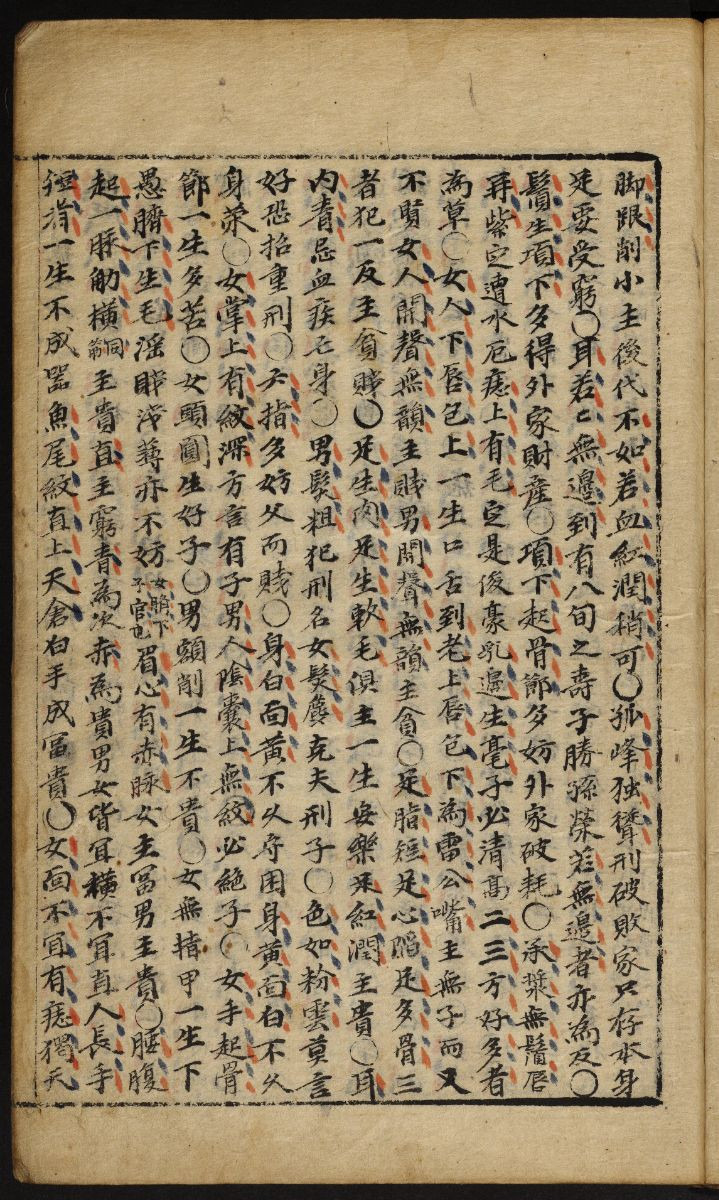 脚跟削小主後代不如若血紅潤稍可〇孤峰独聳刑破敗家只存本身
足要受窮〇耳若亡無邊到有八旬之壽子勝孫榮若無邊者亦為反〇
鬚生項下多得外家財産〇項下起骨節多妨外家破耗〇承漿無鬚唇
再紫定遭水厄痣上有毛定是俊豪乳邊生毫子必清高二三方好多者
為草〇女人下唇包上一生口舌到老上唇包下為雷公嘴主無子而又
不賢女人開聲無韻主賤男開聲無韻主貧〇足脂短足心陷足多骨三
者犯一反主貧賤〇足生肉足生軟毛俱主一生安樂足紅潤主貴〇耳
内青忌血疾亡身〇男髮粗犯刑名女髮麄克夫刑子〇色如粉雲莫言
好恐招重刑〇六指多妨父而賤〇身白面黃不久守困身黃面白不久
身榮〇女掌上有紋深方言有子男人陰囊上無紋必絕子〇女手起骨
節一生多苦〇女頭圓生好子〇男額削一生不貴〇女無指甲一生下
愚臍下生毛淫賤浅薄亦不妨女臍下不官也眉心有赤脉女主富男主貴〇腰腹
起一脉觔橫同主貴直主窮青為次赤為貴男女皆宜橫不宜直人長手
短者一生不成器魚尾紋直上天倉白手成富貴〇女面不宜有痣獨天